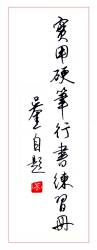 實用硬筆行書練習冊
自題